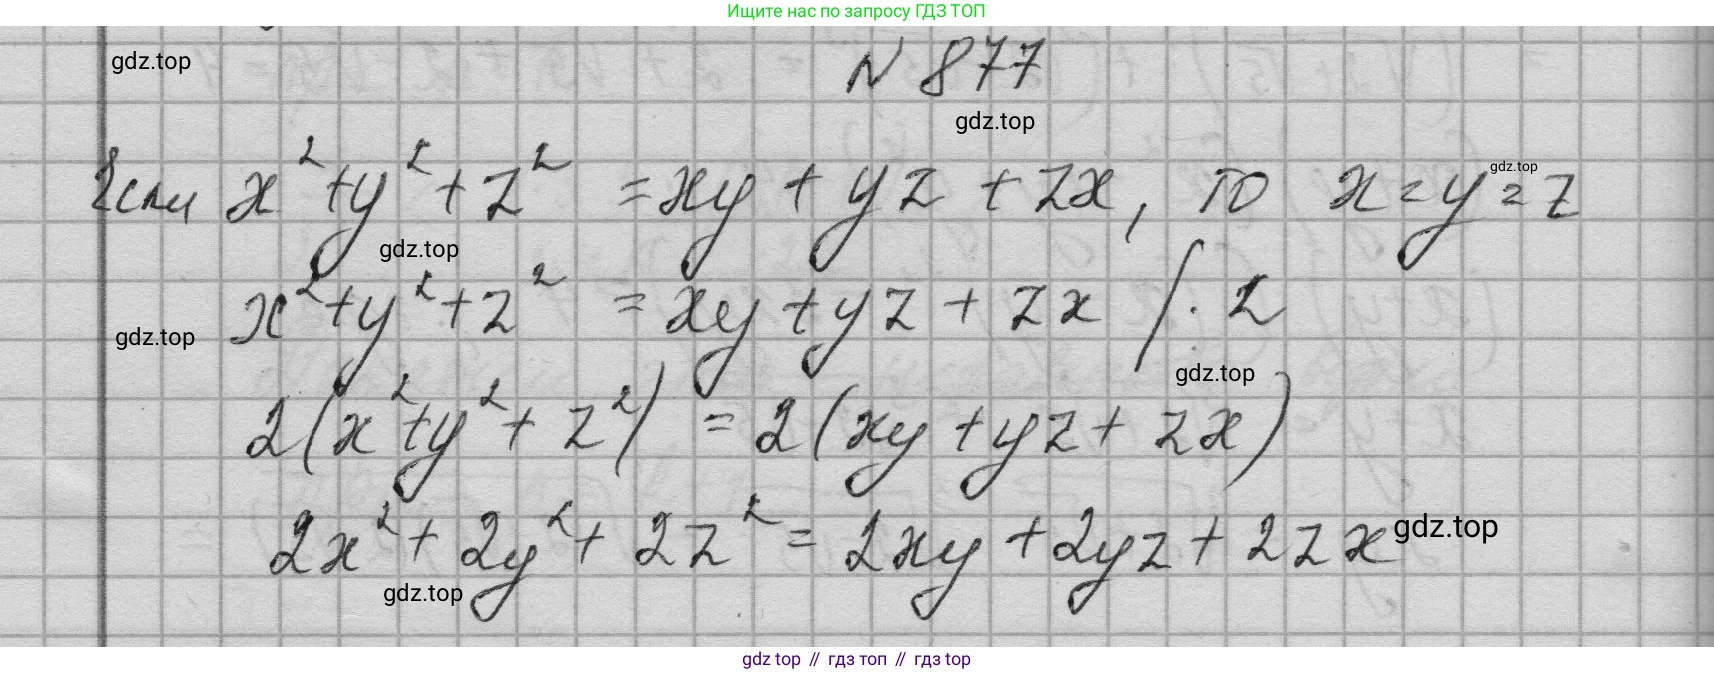 Ищите нас по запросу ГДЗ ТОП
gdz.top
N 877
gdz.top
Если x²+y²+z² = xy + yz + zx, то x=y=z
gdz.top
gdz.top
x²+y²+z² = xy+yz+zx /·2
gdz.top
gdz.top
2(x²+y²+z²) = 2(xy+yz+zx)
2x²+2y²+2z² = 2xy+2yz+2zx
gdz.top
gdz.top
gdz top // гдз топ // gdz top